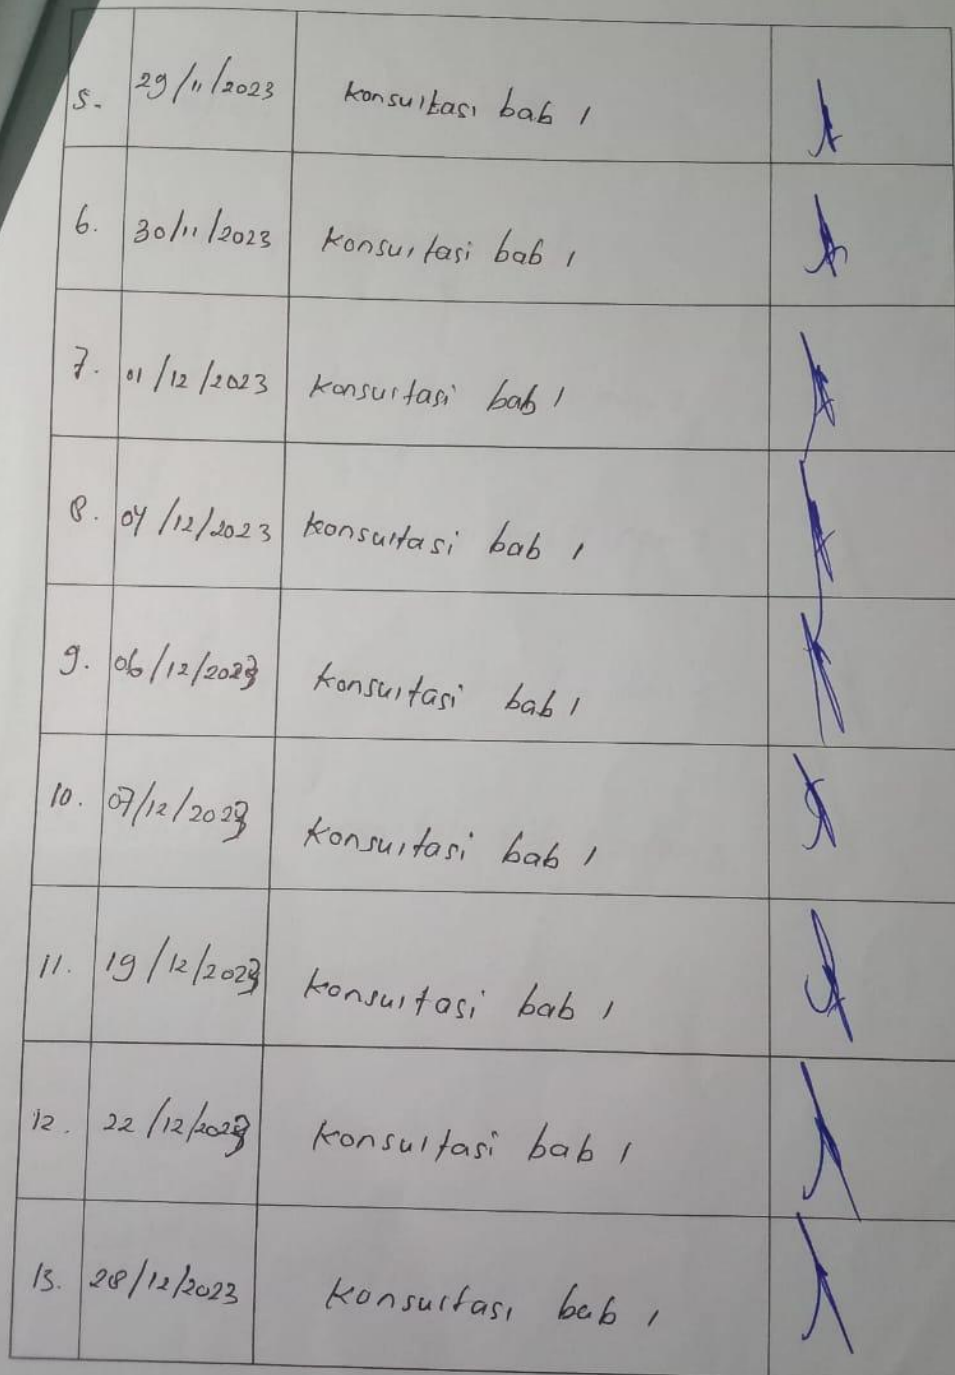 5. 29/11/2023 Konsultasi bab 1
6. 30/11/2023 Konsultasi bab 1
7. 01/12/2023 Konsultasi bab 1
8. 04/12/2023 Konsultasi bab 1
9. 06/12/2023 Konsultasi bab 1
10. 07/12/2023 Konsultasi bab 1
11. 19/12/2023 Konsultasi bab 1
12. 22/12/2023 Konsultasi bab 1
13. 28/12/2023 Konsultasi bab 1